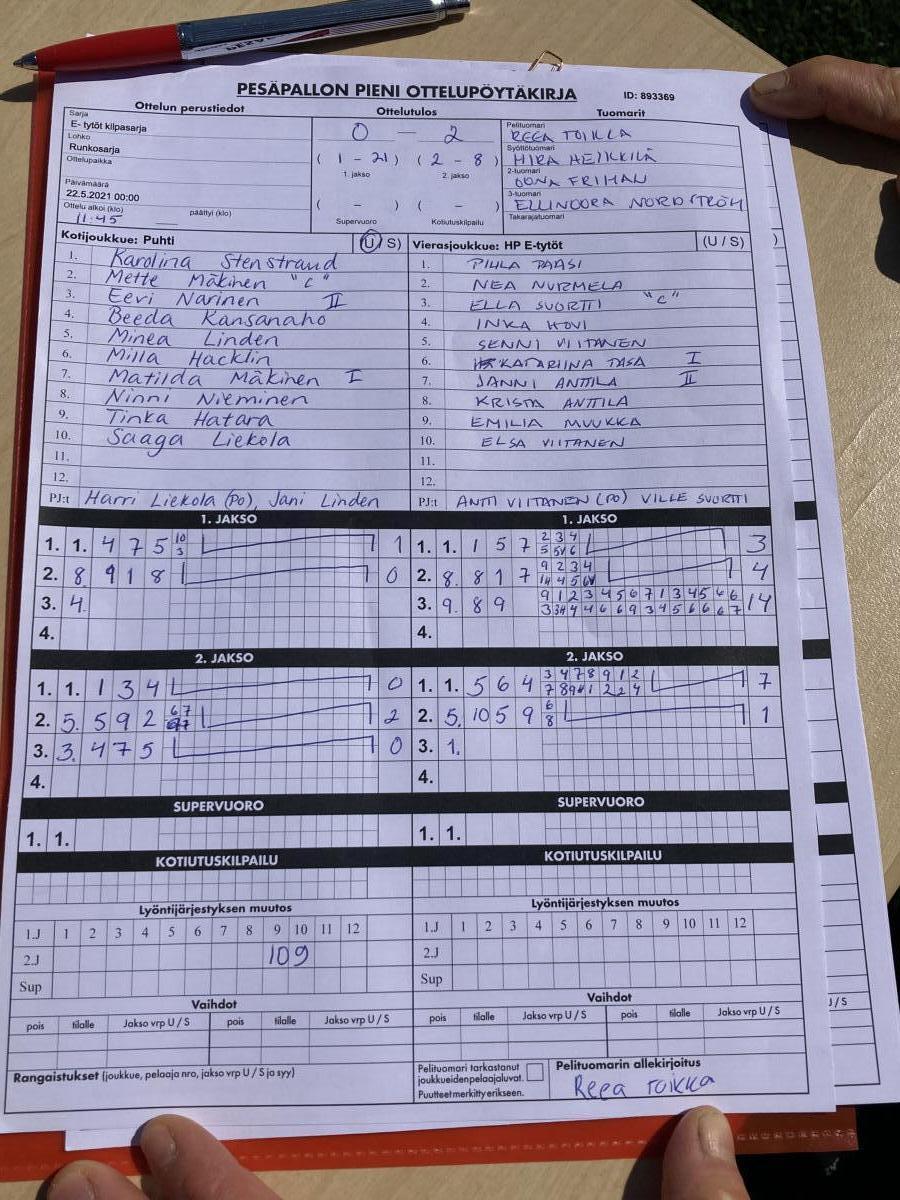 PESÄPALLON PIENI OTTELUPÖYTÄKIRJA ID: 893369
Ottelun perustiedot Ottelutulos Tuomarit
Sarja
E- tytöt kilpasarja
Lohko
Runkosarja
Ottelupaikka
Päivämäärä
22.5.2021 00:00
Ottelu alkoi (klo) päättyi (klo)
11.45
0 — 2
( 1 - 21 ) ( 2 - 8 )
1. jakso 2. jakso
( - ) ( - )
Supervuoro Kotiutuskilpailu
Pelituomari
REEA TOIKKA
Syöttötuomari
MIRA HEIKKILÄ
2-tuomari
OONA FRIMAN
3-tuomari
ELLINOORA NORDSTRÖM
Takarajatuomari
Kotijoukkue: Puhti (U/S)
1. Karolina Stenstrand
2. Mette Mäkinen "c"
3. Eevi Narinen II
4. Beeda Kansanaho
5. Minea Linden
6. Milla Hacklin
7. Matilda Mäkinen I
8. Ninni Nieminen
9. Tinka Hatara
10. Saaga Liekola
11.
12.
PJ:t Harri Liekola (PO), Jani Linden
Vierasjoukkue: HP E-tytöt (U / S)
1. PIHLA PAASI
2. NEA NURMELA
3. ELLA SUORTTI "c"
4. INKA HOVI
5. SENNI VIITANEN
6. KATARIINA TASA I
7. JANNI ANTTILA II
8. KRISTA ANTTILA
9. EMILIA MUUKKA
10. ELSA VIITANEN
11.
12.
PJ:t ANTTI VIITANEN (PO) VILLE SUORTTI
1. JAKSO
1. 1. 4 7 5 10 3 1
2. 8. 9 1 8 0
3. 4.
4.
1. JAKSO
1. 1. 1 5 7 2 3 4 3
2. 8. 8 1 7 9 2 3 4 4
3. 9. 8 9 9 1 2 3 4 5 6 7 1 3 4 5 6 6 14
4.
2. JAKSO
1. 1. 1 3 4 0
2. 5. 5 9 2 6 7 2
3. 3. 4 7 5 0
4.
2. JAKSO
1. 1. 5 6 4 3 4 7 8 9 1 2 7
2. 5. 10 5 9 6 8 1
3. 1.
4.
SUPERVUORO SUPERVUORO
1. 1. 1. 1.
KOTIUTUSKILPAILU KOTIUTUSKILPAILU
Lyöntijärjestyksen muutos Lyöntijärjestyksen muutos
1.J 1 2 3 4 5 6 7 8 9 10 11 12 1.J 1 2 3 4 5 6 7 8 9 10 11 12
2.J 10 9 2.J
Sup Sup
Vaihdot Vaihdot
pois tilalle Jakso vrp U / S pois tilalle Jakso vrp U / S pois tilalle Jakso vrp U / S pois tilalle Jakso vrp U / S
Rangaistukset (joukkue, pelaaja nro, jakso vrp U / S ja syy)
Pelituomari tarkastanut
joukkueidenpelaajaluvat.
Puutteet merkitty erikseen.
Pelituomarin allekirjoitus
Reea Toikka
J / S